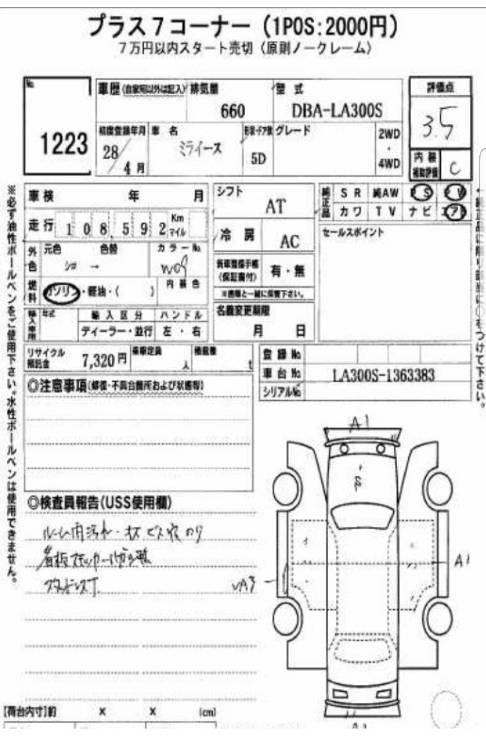 プラス7コーナー（1POS:2000円）
7万円以内スタート売切（原則ノークレーム）
No.
1223
車歴（自家用以外は記入）
排気量
660
型式
DBA-LA300S
評価点
3.5
初度登録年月
28/4月
車名
ミライース
形状・ドア数
5D
グレード
2WD
・
4WD
内装
補助評価
C
車検 年 月
シフト
AT
純正品
SR 純AW PS PW
カワ TV ナビ エアB
走行 108,592 Km マイル
冷房
AC
セールスポイント
外色
元色 色替 カラーNo.
シロ →
W09
新車整備手帳
（保証書付）
有・無
※書類と一緒に保管下さい。
燃料
ガソリン・軽油・（ ）
内装色
名義変更期限
月 日
輸入車用
年式
輸入区分
ハンドル
ディーラー・並行
左・右
リサイクル
預託金
7,320円
乗車定員
人
積載量
t
登録No
車台No
LA300S-1363383
シリアルNo
◎注意事項（修復・不具合箇所および状態等）
◎検査員報告（USS使用欄）
ルーム内汚れ・キズ ビス穴 のり
A1
A1
【荷台内寸】約 × × （cm）
※必ず油性ボールペンをご使用下さい。水性ボールペンは使用できません。